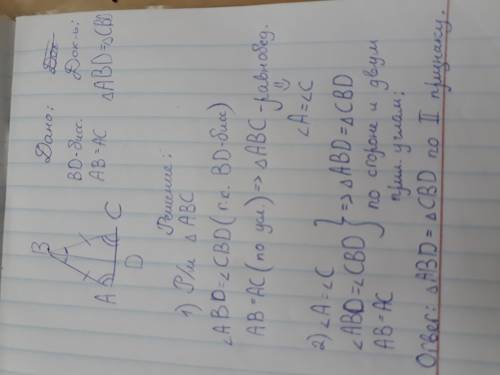 Дано:
BD-бисс.
AB=AC
Док-ть:
△ABD=△CBD
B
A
D
C
Решение:
1) Р/м △ABC
∠ABD=∠CBD (т.к. BD-бисс)
AB=AC (по усл.) => △ABC-равнобед.
∠A=∠C
2) ∠A=∠C
∠ABD=∠CBD
AB=AC
=> △ABD=△CBD
по стороне и двум
прил. углам;
Ответ: △ABD=△CBD по II признаку.